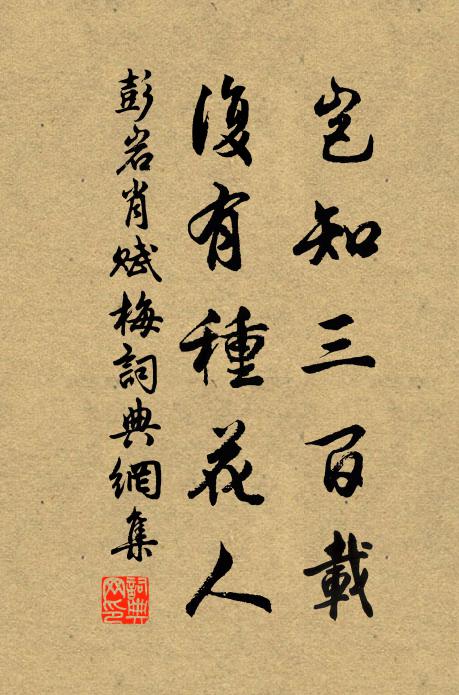 豈知三百載
復有種花人
彭岩肖賦梅詞典網集
詞典网印